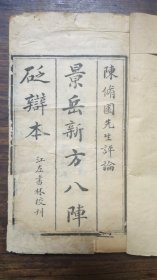 陳脩園先生評論
景岳新方八陣
砭辯本
江左書林校刊